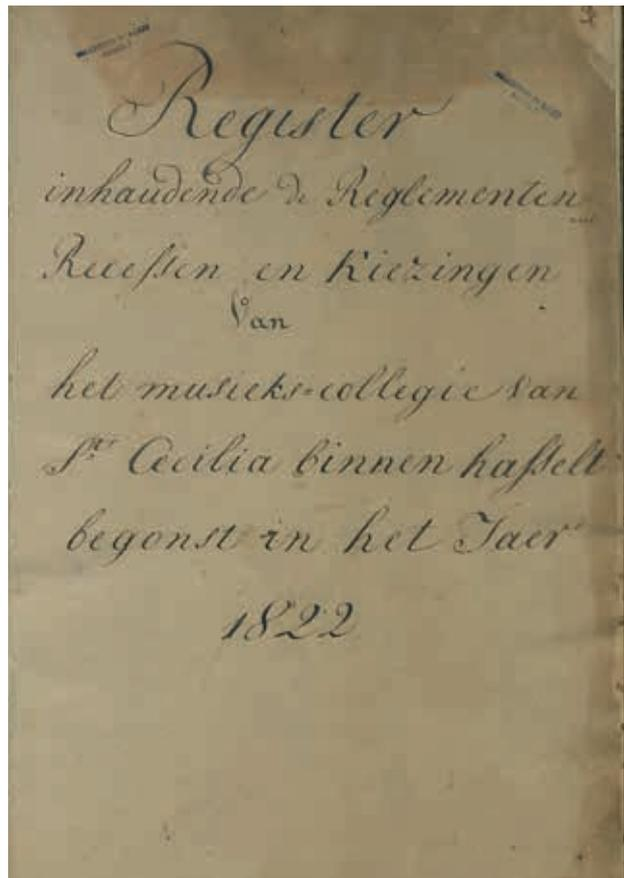 Register
inhaudende de Reglementen
Recessen en Kiezingen
Van
het musieks=collegie van
Ste Cecilia binnen hasselt
begonst in het Jaer
1822